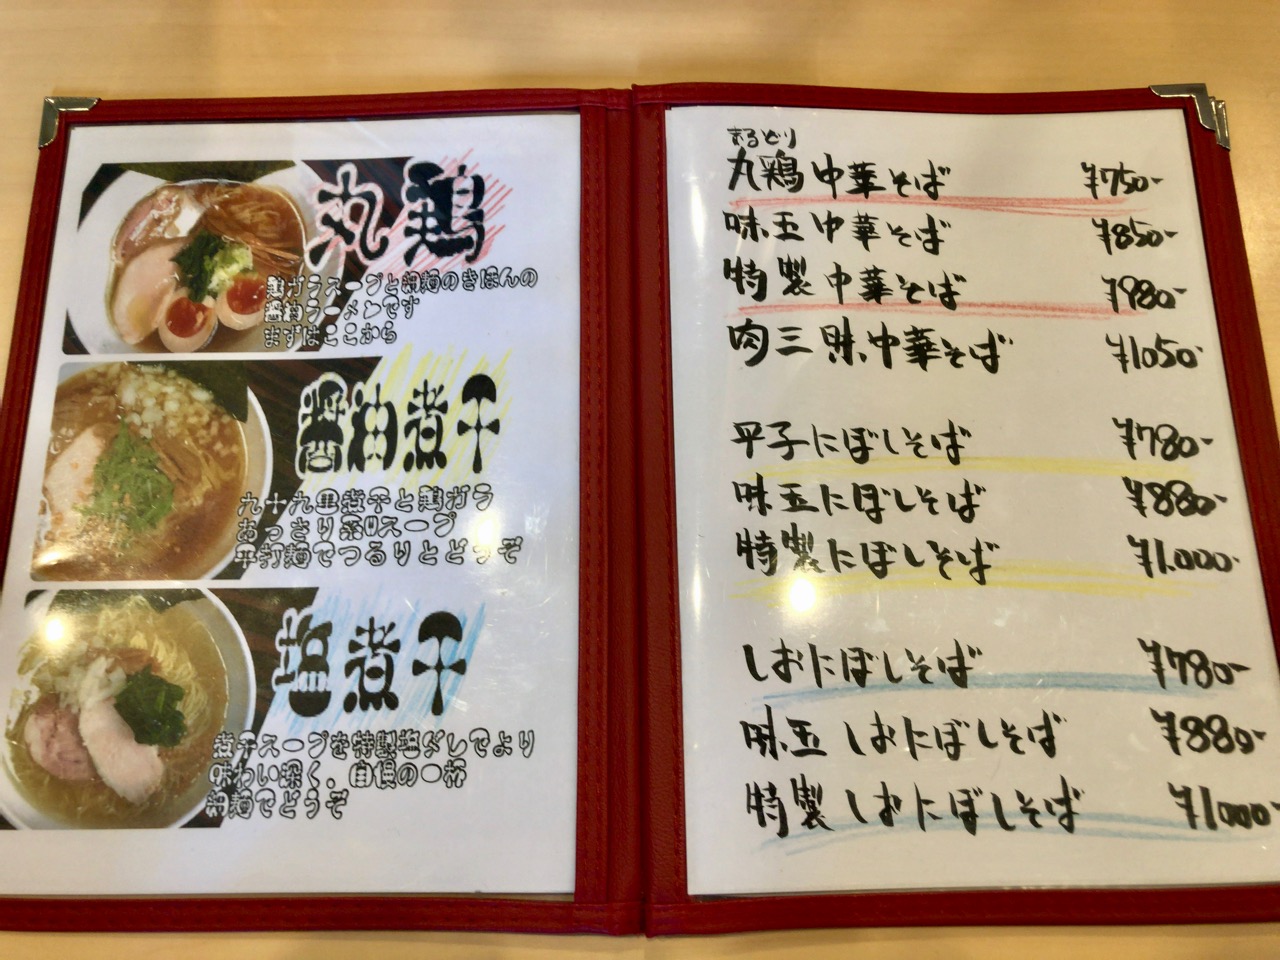 丸鶏
鶏ガラスープと細麺のきほんの
醤油ラーメンです
まずはここから
醤油煮干
九十九里煮干と鶏ガラ
あっさり系Wスープ
平打麺でつるりとどうぞ
塩煮干
煮干スープを特製塩〆しでより
味わい深く、自慢の一杯
細麺でどうぞ
まるどり
丸鶏中華そば ¥750-
味玉中華そば ¥850-
特製中華そば ¥980-
肉三昧中華そば ¥1050-
平子にぼしそば ¥780-
味玉にぼしそば ¥880-
特製にぼしそば ¥1.000-
しおにぼしそば ¥780-
味玉しおにぼしそば ¥880-
特製しおにぼしそば ¥1000-